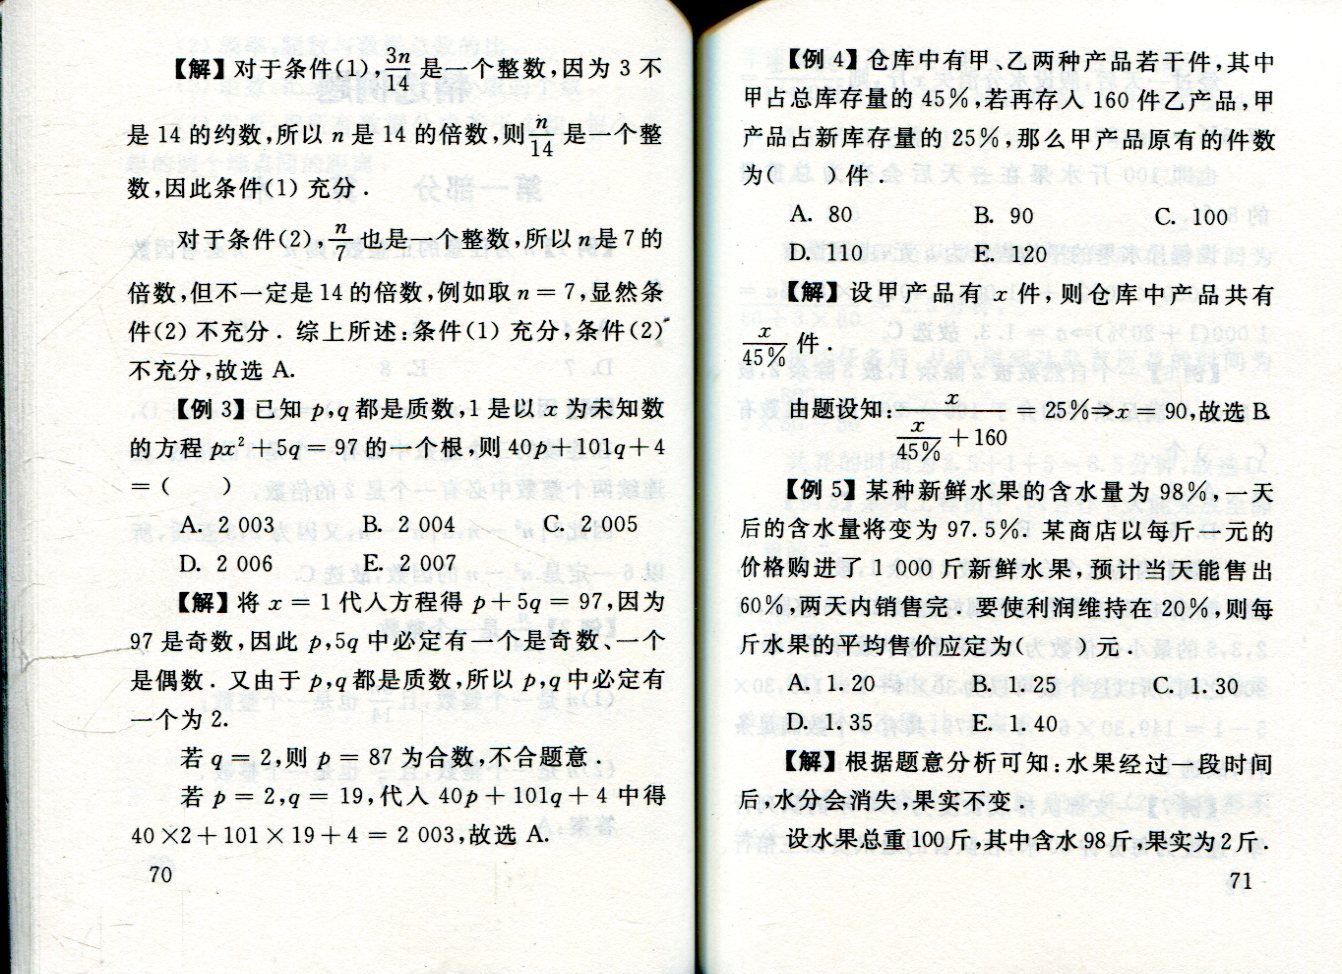 【解】对于条件(1),3n/14 是一个整数,因为 3 不
是 14 的约数,所以 n 是 14 的倍数,则 n/14 是一个整
数,因此条件(1) 充分.
对于条件(2),n/7 也是一个整数,所以 n 是 7 的
倍数,但不一定是 14 的倍数,例如取 n = 7,显然条
件(2) 不充分. 综上所述:条件(1) 充分,条件(2)
不充分,故选 A.
【例 3】已知 p,q 都是质数,1 是以 x 为未知数
的方程 px²+5q = 97 的一个根,则 40p+101q+4
= ( )
A. 2 003 B. 2 004 C. 2 005
D. 2 006 E. 2 007
【解】将 x = 1 代入方程得 p+5q = 97,因为
97 是奇数,因此 p,5q 中必定有一个是奇数、一个
是偶数. 又由于 p,q 都是质数,所以 p,q 中必定有
一个为 2.
若 q = 2,则 p = 87 为合数,不合题意.
若 p = 2,q = 19,代入 40p+101q+4 中得
40×2+101×19+4 = 2 003,故选 A.
70
【例 4】仓库中有甲、乙两种产品若干件,其中
甲占总库存量的 45%,若再存入 160 件乙产品,甲
产品占新库存量的 25%,那么甲产品原有的件数
为( )件.
A. 80 B. 90 C. 100
D. 110 E. 120
【解】设甲产品有 x 件,则仓库中产品共有
x/45% 件.
由题设知: x/(x/45%+160) = 25%⇒x = 90,故选 B.
【例 5】某种新鲜水果的含水量为 98%,一天
后的含水量将变为 97.5%. 某商店以每斤一元的
价格购进了 1 000 斤新鲜水果,预计当天能售出
60%,两天内销售完. 要使利润维持在 20%,则每
斤水果的平均售价应定为( )元.
A. 1.20 B. 1.25 C. 1.30
D. 1.35 E. 1.40
【解】根据题意分析可知:水果经过一段时间
后,水分会消失,果实不变.
设水果总重 100 斤,其中含水 98 斤,果实为 2 斤.
71